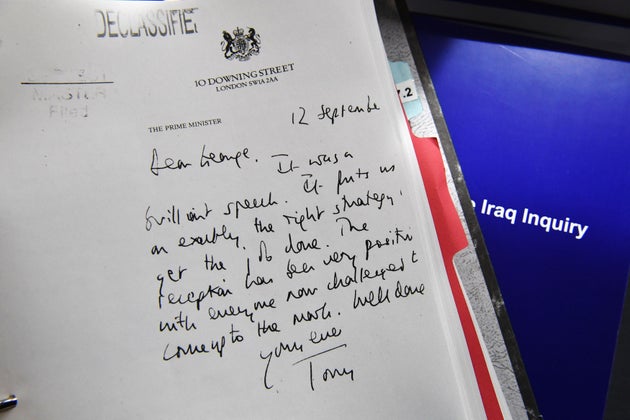 DECLASSIFIED
MASTER
Filed
10 DOWNING STREET
LONDON SW1A 2AA
THE PRIME MINISTER
12 September
Dear George. It was a
brilliant speech. It puts us
on exactly the right strategy
get the job done. The
reception has been very positive
with everyone now challenged to
come up to the mark. Well done
Yours ever
Tony
7.2
Iraq Inquiry